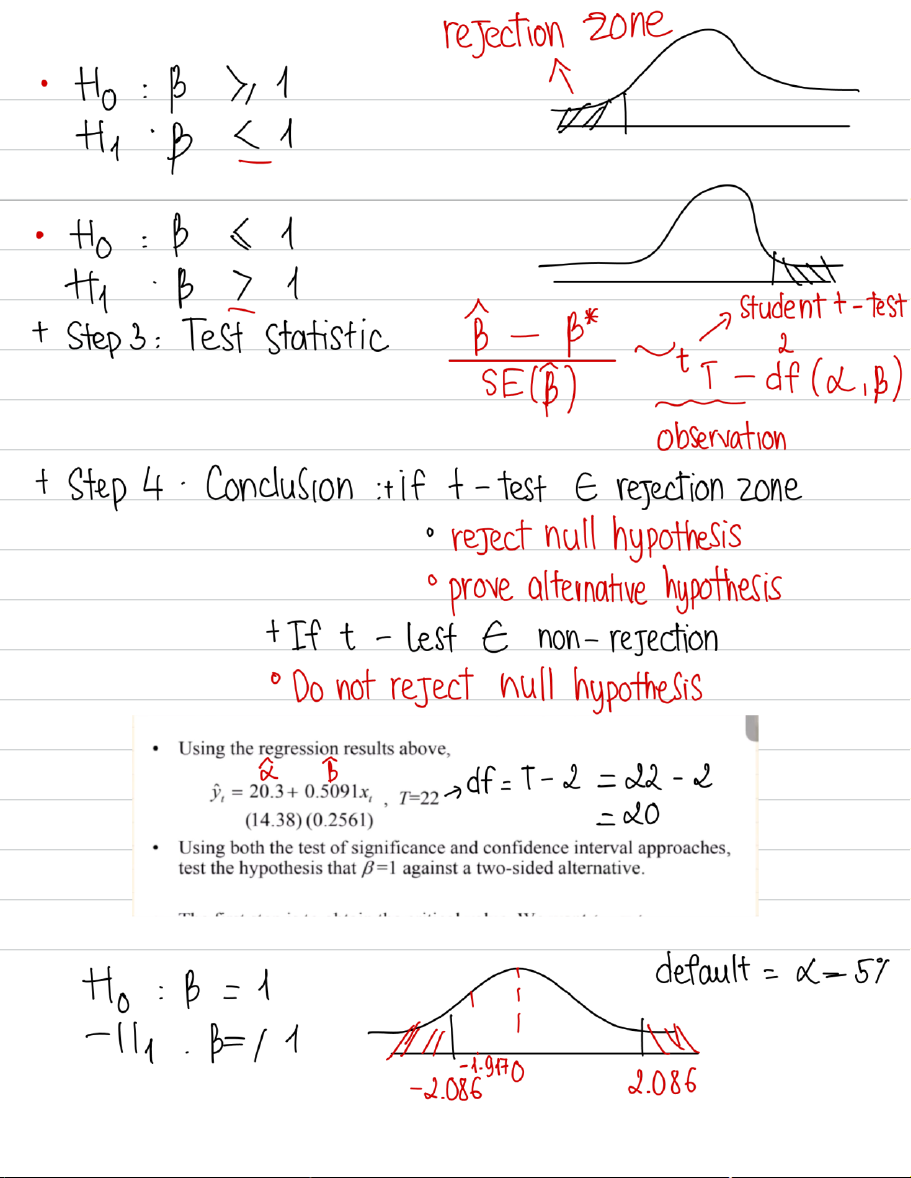 rejection zone
• H₀ : β ⩾ 1
H₁ : β < 1
• H₀ : β ⩽ 1
H₁ : β > 1
student t-test
+ Step 3: Test statistic β̂ - β* / SE(β̂) ~ t T - 2 df (α, β)
observation
+ Step 4. Conclusion :+ if t-test ∈ rejection zone
° reject null hypothesis
° prove alternative hypothesis
+ If t - test ∈ non-rejection
° Do not reject null hypothesis
• Using the regression results above,
α̂ β̂
ŷₜ = 20.3 + 0.5091xₜ , T=22 → df = T - 2 = 22 - 2
(14.38) (0.2561) = 20
• Using both the test of significance and confidence interval approaches,
test the hypothesis that β=1 against a two-sided alternative.
default = α = 5%
H₀ : β = 1
H₁ : β =/ 1
-1.917 0
-2.086 2.086